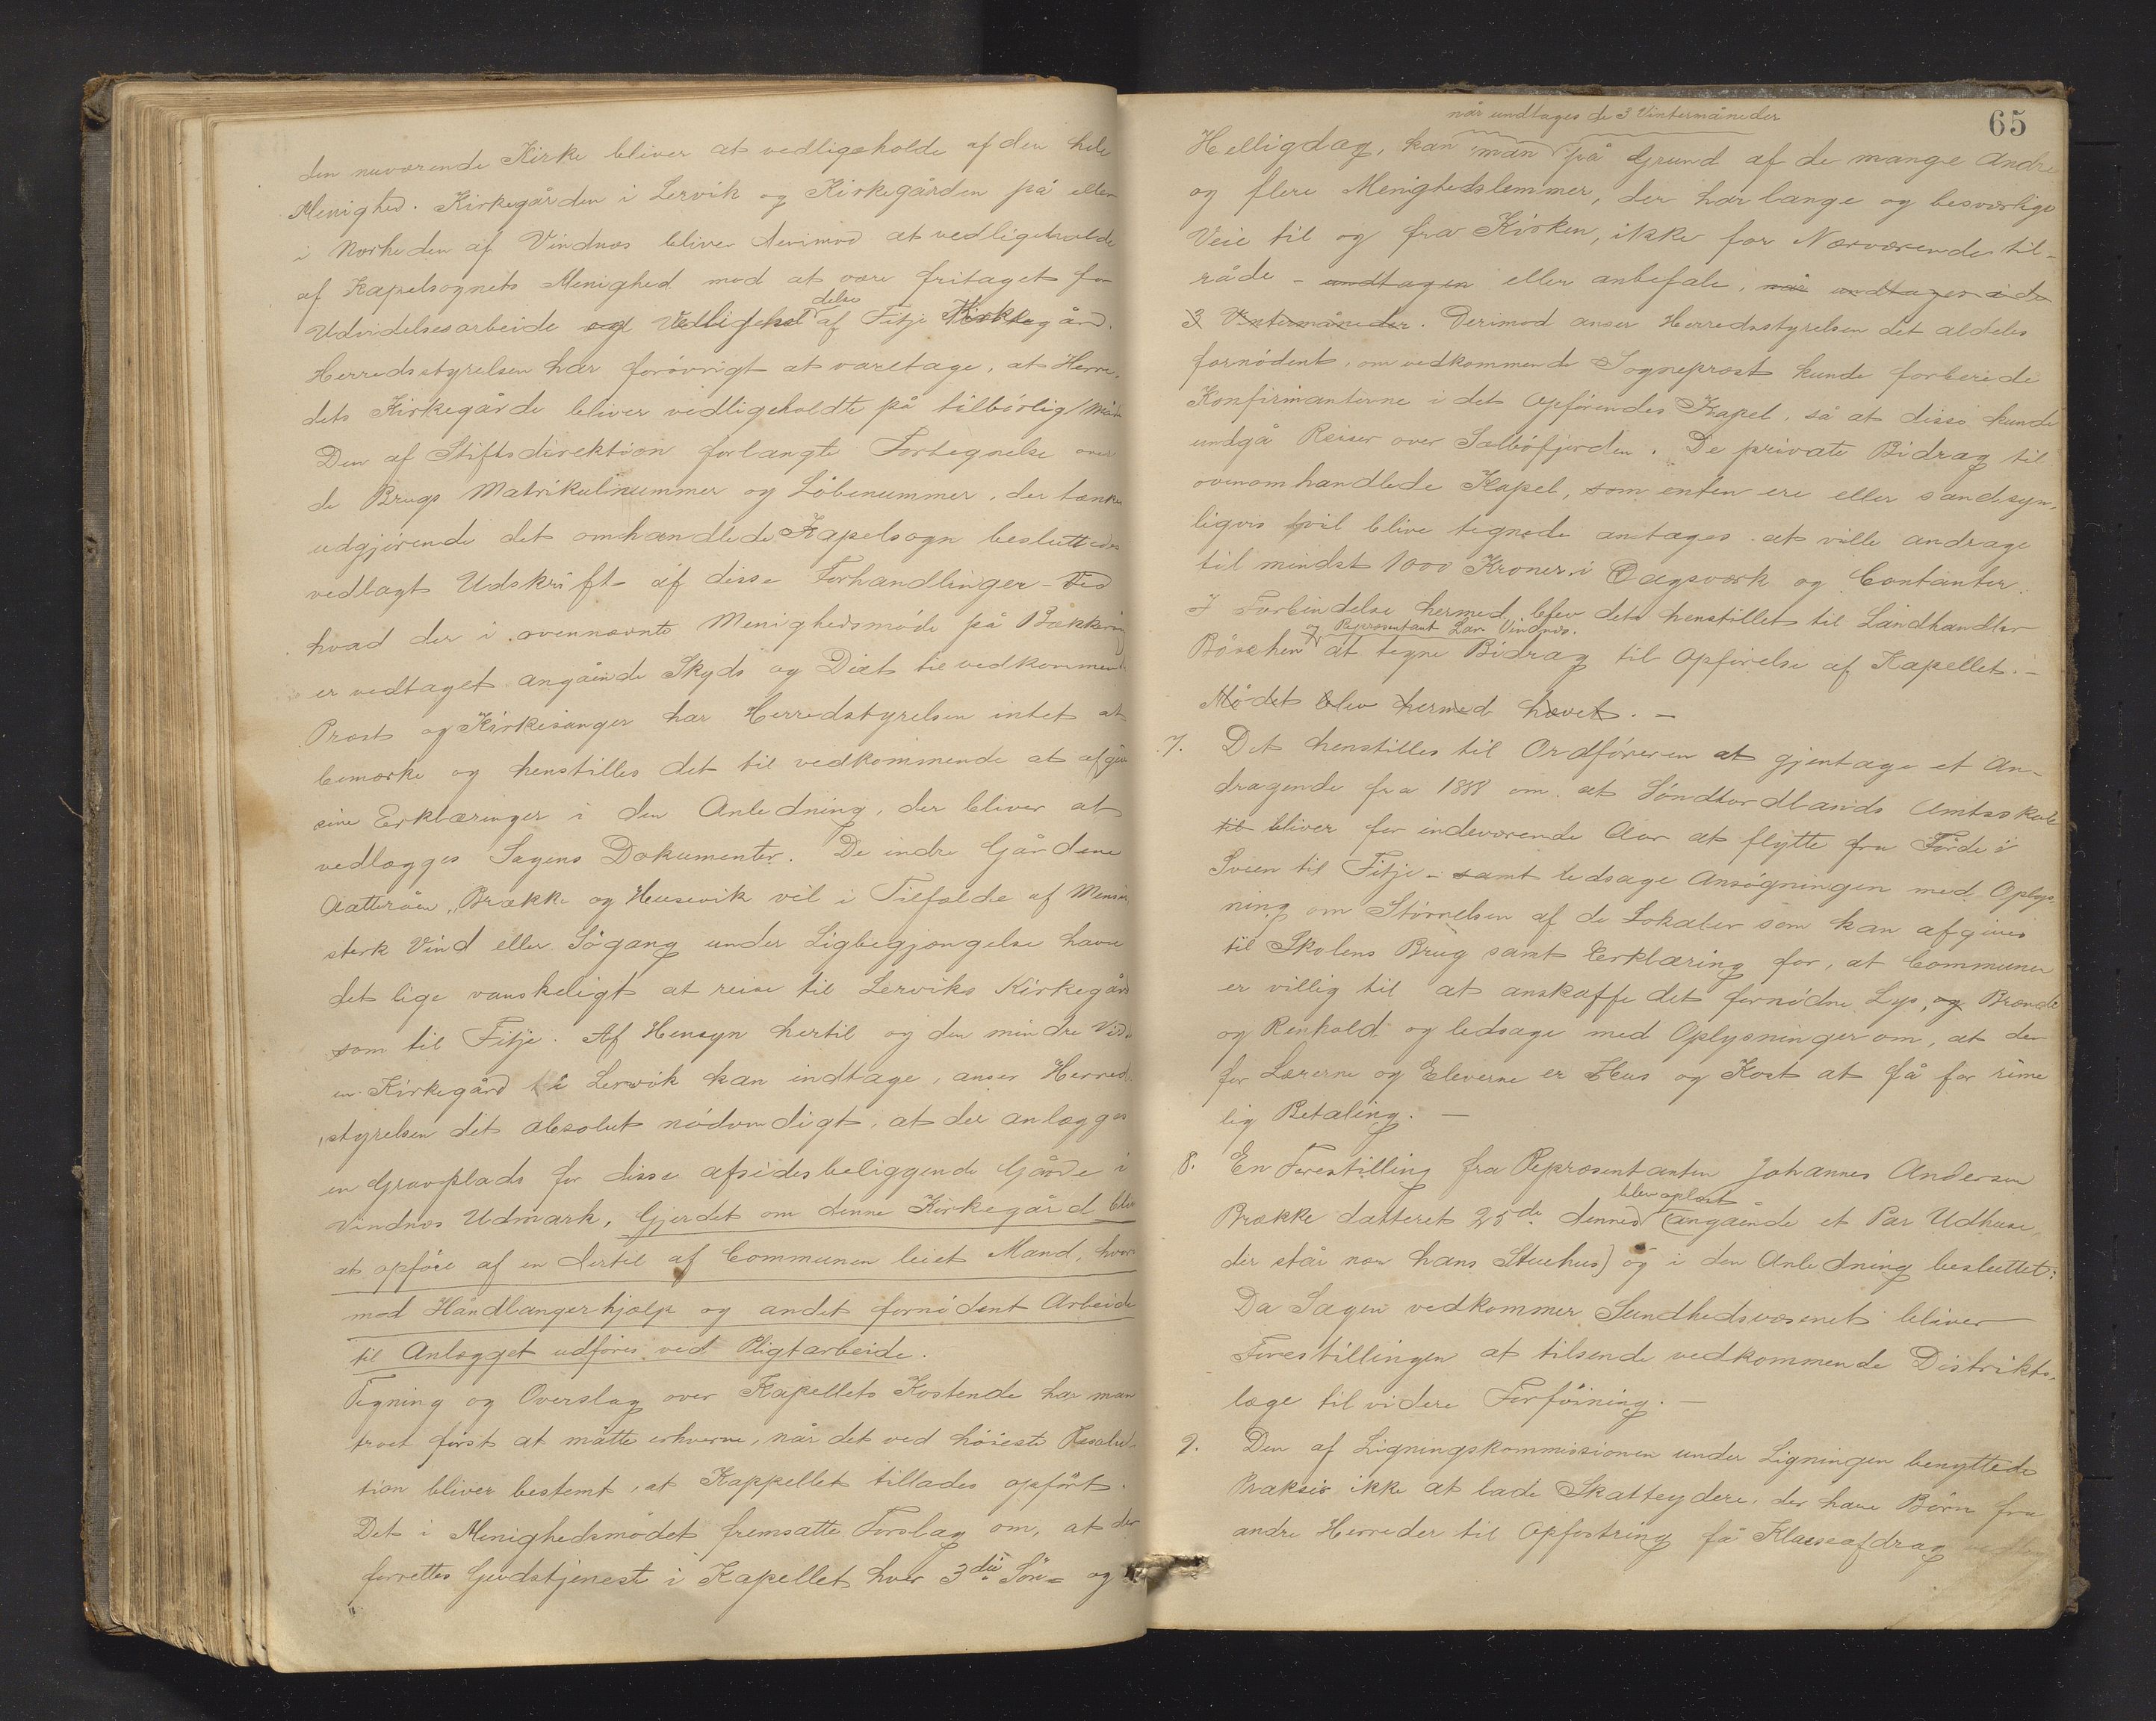 den nuværende Kirke bliver at vedligeholde af den hele
Menighed. Kirkegården i Lervik og Kirkegården på eller
i Nærheden af Vindnæs bliver derimod at vedligeholde
af Kapelsognets Menighed mod at være fritaget for
Udvidelsesarbeide og Vedligehol delse af Fitje Kirkegård.
Herredsstyrelsen har forøvrigt at varetage, at Herre-
dets Kirkegårde bliver vedligeholdte på tilbørlig Måde
Den af Stiftsdirektion forlangte Fortegnelse over
de Brugs Matrikulnummer og Løbenummer, der tænkes
udgjørende det omhandlede Kapelsogn besluttedes
vedlagt Udskrift af disse Forhandlinger - Ved
hvad der i ovennævnte Menighedsmøde på Bækkevig
er vedtaget angående Skyds og Diæt til vedkommende
Præst og Kirkesanger har Herredstyrelsen intet at
bemærke og henstilles det til vedkommende at afgive
sine Erklæringer i den Anledning, der bliver at
vedlægges Sagens Dokumenter. De indre Gårdene
Aatteråen, Brække og Husevik vil i Tilfælde af
sterk Vind eller Søgang under Ligbegjængelse have
det lige vanskeligt at reise til Lerviks Kirkegård
som til Fitje. Af Hensyn hertil og den mindre Vidde
en Kirkegård i Lervik kan indtage, anser Herreds-
styrelsen det absolut nødvendigt, at der anlægges
en Gravplads for disse afsidesbeliggende Gårde i
Vindnæs Udmark, Gjerdet om denne Kirkegård bliver
at opføre af en dertil af Communen leiet Mand, hvor-
mod Håndlangerhjælp og andet fornødent Arbeide
til Anlægget udføres ved Pligtarbeide.
Tegning og Overslag over Kapellets Kostende har man
troet først at måtte erhverve, når det ved høieste Resolu-
tion bliver bestemt, at Kappellet tillades opført.
Det i Menighedsmødet fremsatte Forslag om, at der
forrettes Gudstjeneste i Kapellet hver 3die Søn= og
65
når undtages de 3 Vintermåneder
Helligdag, kan man på Grund af de mange Andre
og flere Menighedslemmer, der har lange og besværlige
Veie til og fra Kirken, ikke for Nærværende til-
råde - undtagen eller anbefale, når undtages i de
3 Vintermåneder. Derimod anser Herredsstyrelsen det aldeles
fornødent, om vedkommende Sognepræst kunde forberede
Konfirmanterne i det Opførendes Kapel, så at disse kunde
undgå Reiser over Selbøfjorden. De private Bidrag til
ovenomhandlede Kapel, som enten ere eller sandsyn-
ligvis vil blive tegnede antages at ville andrage
til mindst 1000 Kroner i Dagsværk og Contanter.
I Forbindelse hermed blev det henstillet til Landhandler
og Repræsentant Lars Vindnæs.
Bøschen at tegne Bidrag til Opførelse af Kapellet. -
Mødet blev hermed hævet. -
7. Det henstilles til Ordføreren at gjentage et An-
dragende fra 1888 om at Søndhordlands Amtsskole
til bliver for indeværende Aar at flytte fra Førde i
Sveen til Fitje - samt ledsage Ansøgningen med Oplys-
ning om Størrelsen af de Lokaler som kan afgives
til Skolens Brug samt Erklæring for, at Communen
er villig til at anskaffe det fornødne Lys, og Brænde
og Renhold og ledsage med Oplysninger om, at der
for Lærerne og Eleverne er Hus og Kost at få for rime
lig Betaling. -
8. En Forestilling fra Repræsentanten Johannes Andersen
blev oplæst
Brække datteret 25de dennes (angående et Par Udhuse
der står nær hans Stuehus) og i den Anledning besluttet:
Da Sagen vedkommer Sundhedsvæsenet bliver
Forestillingen at tilsende vedkommende Distrikts-
læge til videre Forføining. -
9. Den af Ligningskommissionen under Ligningen benyttede
Praksis ikke at lade Skatteydere, der have Børn fra
andre Herreder til Opfostring få Klasseafdrag